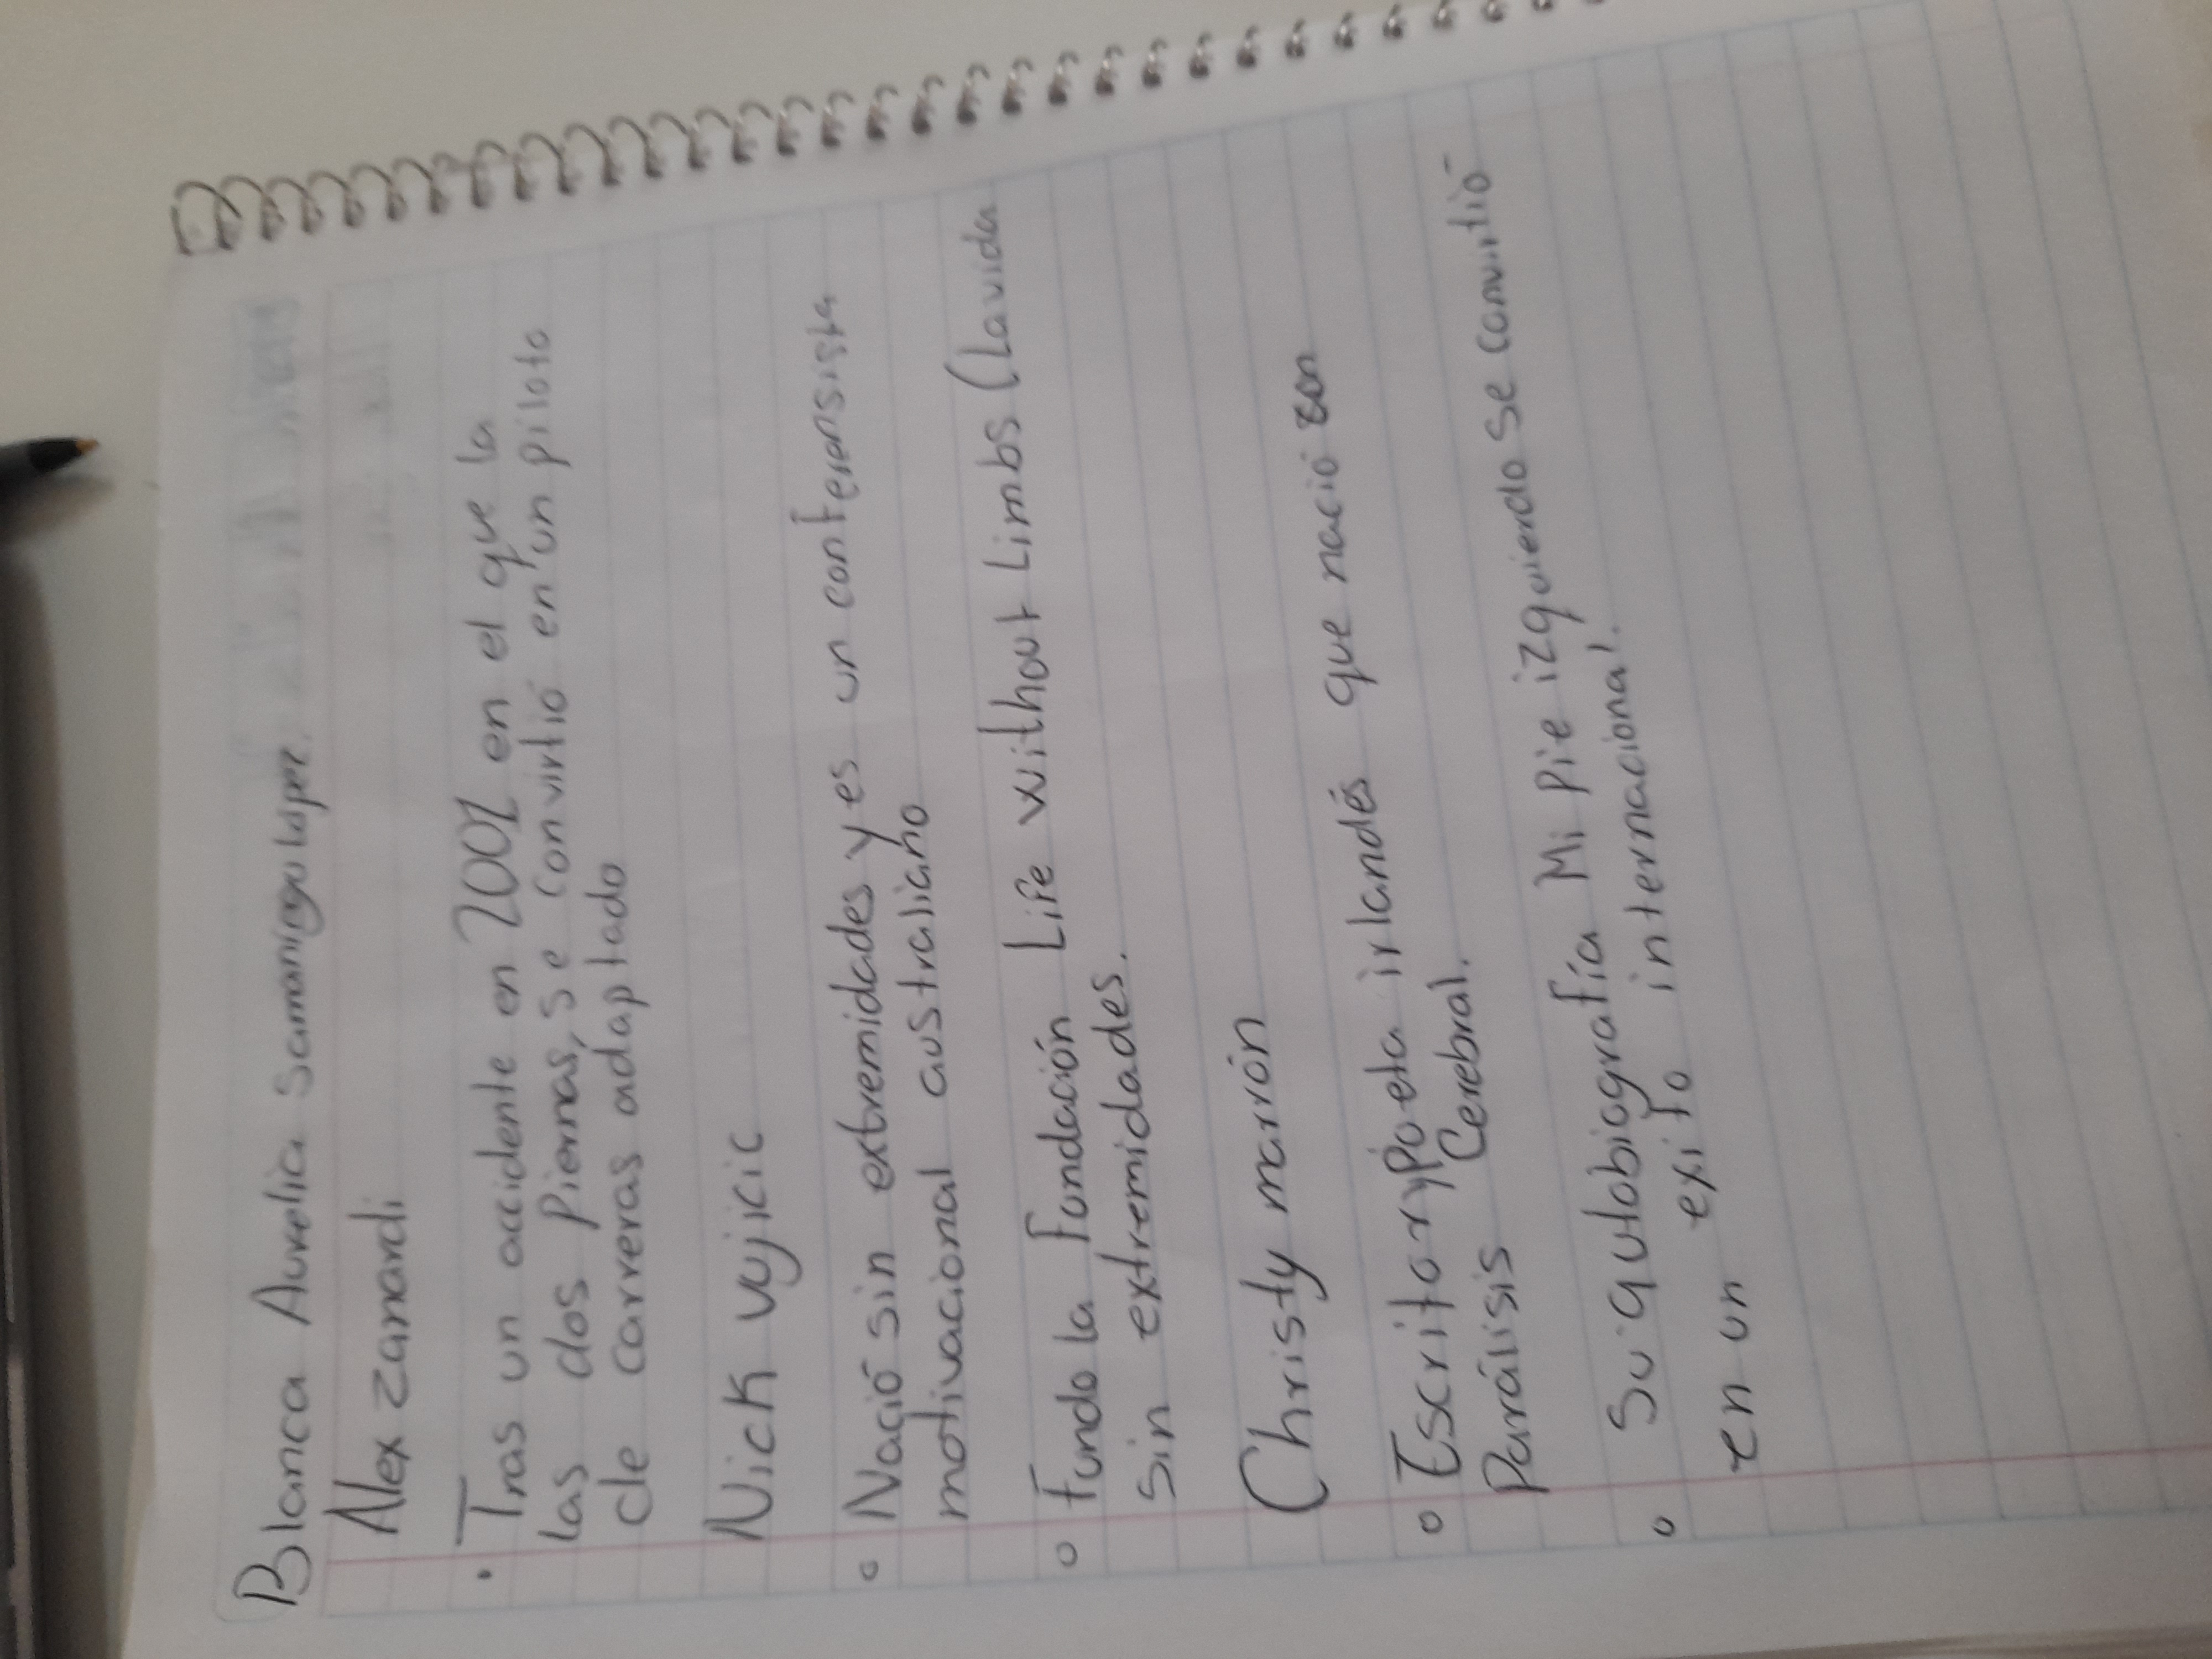 Blanca Aurelia Samaningo López.
Alex zanardi
• Tras un accidente en 2001 en el que la
las dos Piernas, se convirtió en un piloto
de carreras adaptado
Nick vujicic
° Nació sin extremidades y es un conferensista
motivacional australiano
° Fundo la Fundación Life without Limbs (La vida
sin extremidades.
Christy marrón
° Escritor y Poeta irlandés que nació con
Parálisis Cerebral.
° Su autobiografía Mi Pie izquierdo se convirtió
en un exito internacional.